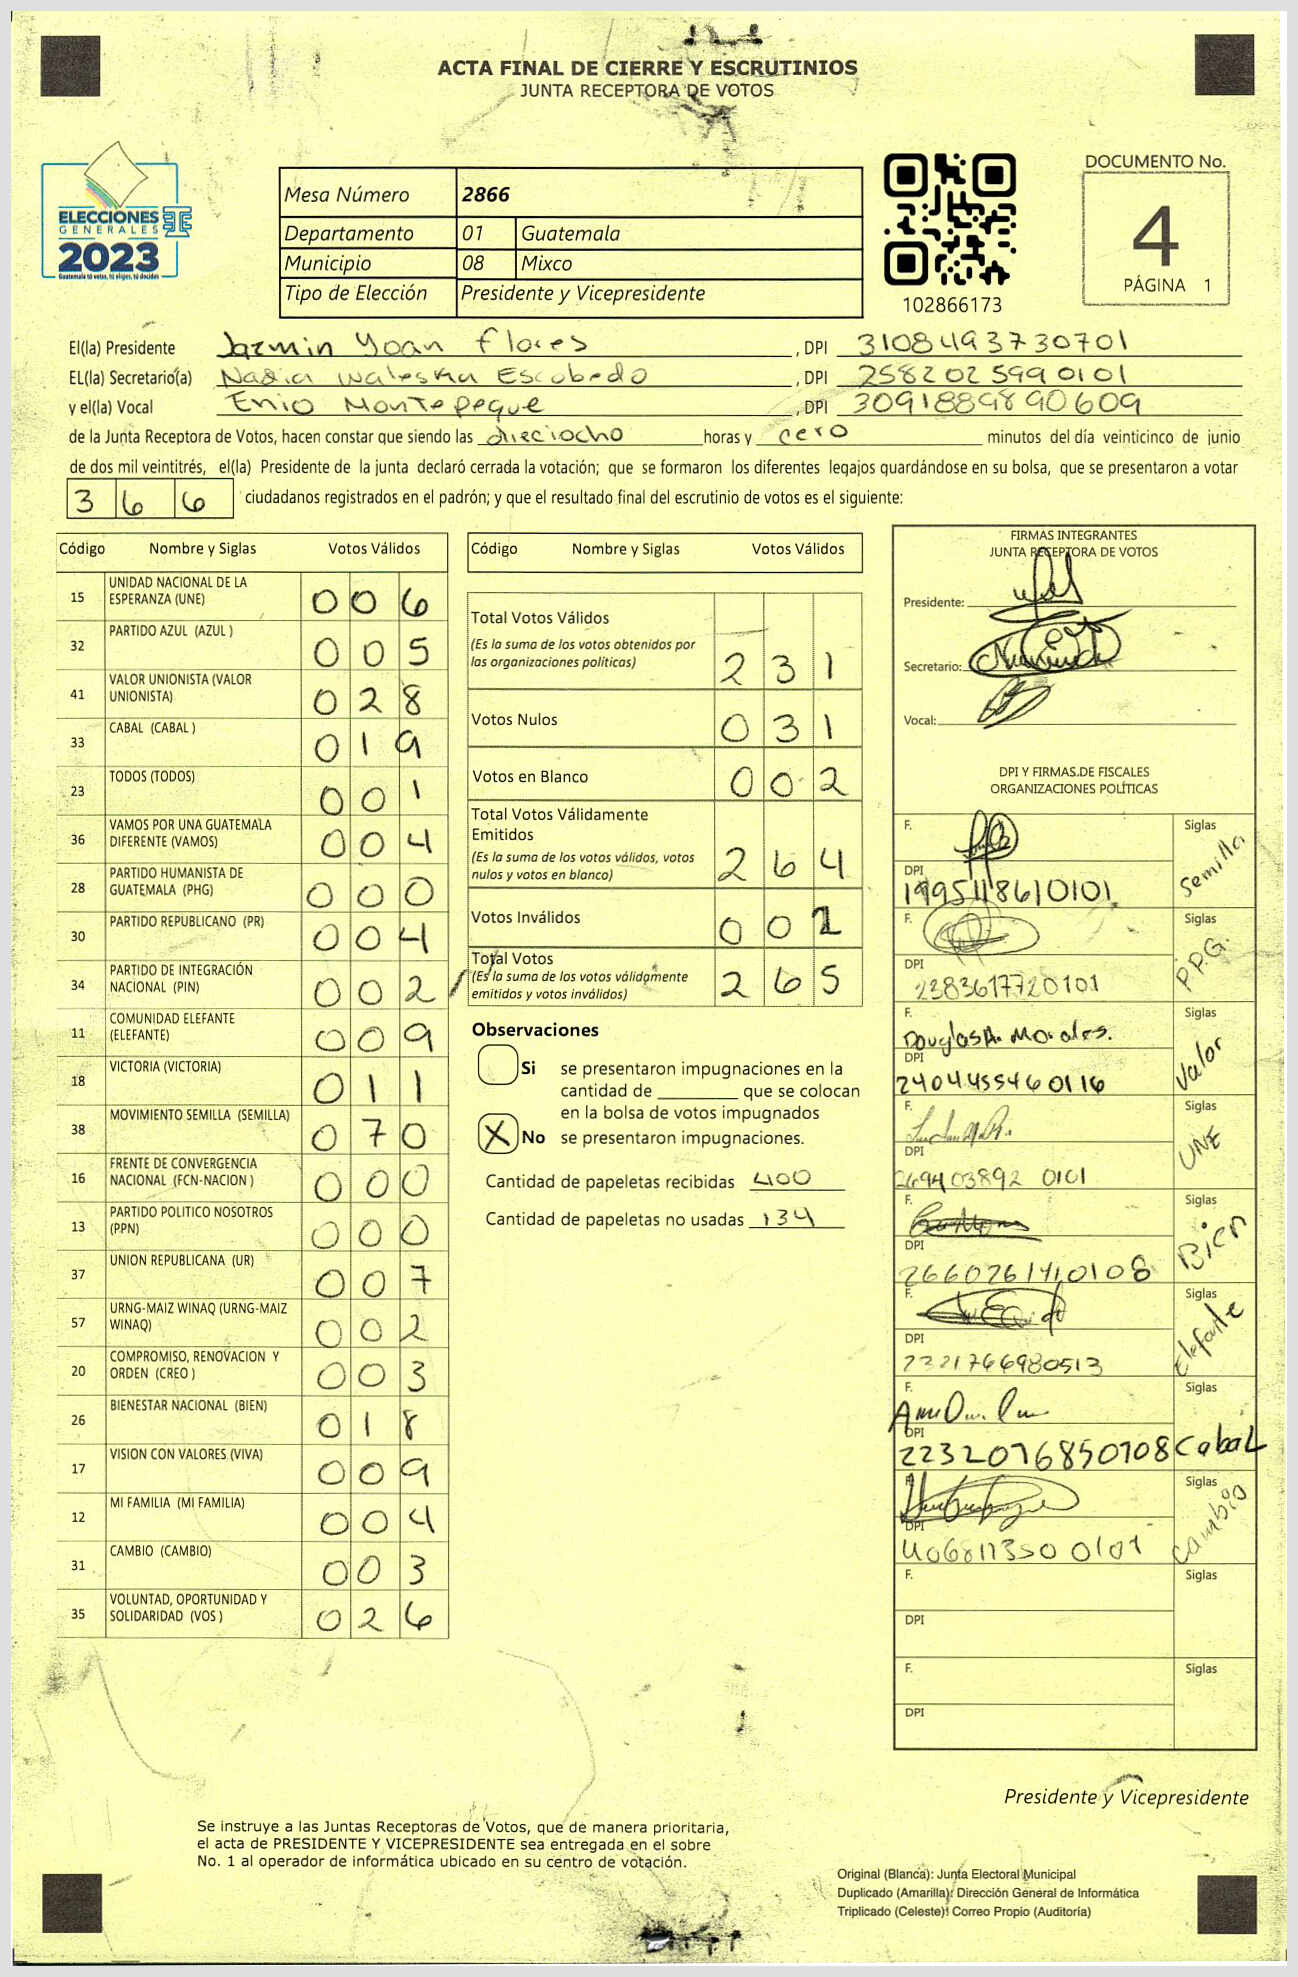 ACTA FINAL DE CIERRE Y ESCRUTINIOS
JUNTA RECEPTORA DE VOTOS
ELECCIONES
GENERALES
2023
Guatemala tú votas, tú eliges, tú decides
Mesa Número 2866
Departamento 01 Guatemala
Municipio 08 Mixco
Tipo de Elección Presidente y Vicepresidente
102866173
DOCUMENTO No.
4
PÁGINA 1
El(la) Presidente Jazmin Yoan Flores , DPI 3108493730701
EL(la) Secretario(a) Nadia Waleska Escobedo , DPI 2582025990101
y el(la) Vocal Enio Montepeque , DPI 3091889890609
de la Junta Receptora de Votos, hacen constar que siendo las dieciocho horas y cero minutos del día veinticinco de junio
de dos mil veintitrés, el(la) Presidente de la junta declaró cerrada la votación; que se formaron los diferentes legajos guardándose en su bolsa, que se presentaron a votar
366 ciudadanos registrados en el padrón; y que el resultado final del escrutinio de votos es el siguiente:
Código Nombre y Siglas Votos Válidos
15 UNIDAD NACIONAL DE LA ESPERANZA (UNE) 006
32 PARTIDO AZUL (AZUL ) 005
41 VALOR UNIONISTA (VALOR UNIONISTA) 028
33 CABAL (CABAL ) 019
23 TODOS (TODOS) 001
36 VAMOS POR UNA GUATEMALA DIFERENTE (VAMOS) 004
28 PARTIDO HUMANISTA DE GUATEMALA (PHG) 000
30 PARTIDO REPUBLICANO (PR) 004
34 PARTIDO DE INTEGRACIÓN NACIONAL (PIN) 002
11 COMUNIDAD ELEFANTE (ELEFANTE) 009
18 VICTORIA (VICTORIA) 011
38 MOVIMIENTO SEMILLA (SEMILLA) 070
16 FRENTE DE CONVERGENCIA NACIONAL (FCN-NACION ) 000
13 PARTIDO POLITICO NOSOTROS (PPN) 000
37 UNION REPUBLICANA (UR) 007
57 URNG-MAIZ WINAQ (URNG-MAIZ WINAQ) 002
20 COMPROMISO, RENOVACION Y ORDEN (CREO ) 003
26 BIENESTAR NACIONAL (BIEN) 018
17 VISION CON VALORES (VIVA) 009
12 MI FAMILIA (MI FAMILIA) 004
31 CAMBIO (CAMBIO) 003
35 VOLUNTAD, OPORTUNIDAD Y SOLIDARIDAD (VOS ) 026
Código Nombre y Siglas Votos Válidos
Total Votos Válidos
(Es la suma de los votos obtenidos por
las organizaciones políticas) 231
Votos Nulos 031
Votos en Blanco 002
Total Votos Válidamente
Emitidos
(Es la suma de los votos válidos, votos
nulos y votos en blanco) 264
Votos Inválidos 00
Total Votos
(Es la suma de los votos válidamente
emitidos y votos inválidos) 265
Observaciones
Si se presentaron impugnaciones en la
cantidad de ________ que se colocan
en la bolsa de votos impugnados
X No se presentaron impugnaciones.
Cantidad de papeletas recibidas 400
Cantidad de papeletas no usadas 134
FIRMAS INTEGRANTES
JUNTA RECEPTORA DE VOTOS
Presidente:
Secretario:
Vocal:
DPI Y FIRMAS DE FISCALES
ORGANIZACIONES POLÍTICAS
F. Siglas Semilla
DPI 1995118610101
F. Siglas P.P.G.
DPI 2383617720101
F. Douglas A. Morales. Siglas Valor
DPI 2404455460116
F. Siglas UNE
DPI 269403892 0101
F. Siglas Bien
DPI 2660261410108
F. Siglas Elefante
DPI 2321766980513
F. Siglas Cabal
DPI 2232076850108
F. Siglas Cambio
DPI
F. Siglas
DPI
F. Siglas
DPI
Presidente y Vicepresidente
Se instruye a las Juntas Receptoras de Votos, que de manera prioritaria,
el acta de PRESIDENTE Y VICEPRESIDENTE sea entregada en el sobre
No. 1 al operador de informática ubicado en su centro de votación.
Original (Blanca): Junta Electoral Municipal
Duplicado (Amarilla): Dirección General de Informática
Triplicado (Celeste): Correo Propio (Auditoría)